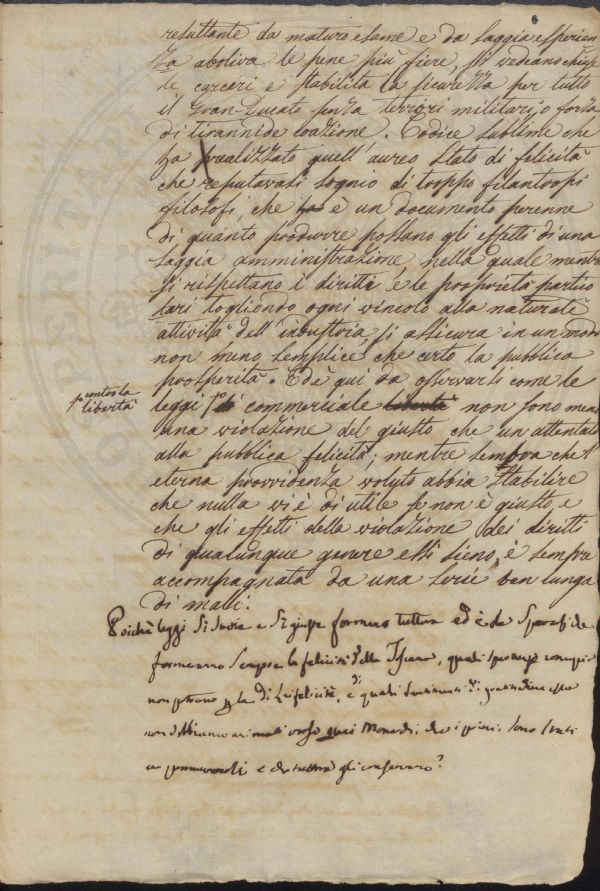 resultante da maturo esame e da saggia esperien
za aboliva le pene più fiere, si vedeano chiuse
le carceri e stabilita la sicurezza per tutto
il Gran-Ducato senza terrori militari, o forza
di tirannide coazione. Codice sublime che
ha realizzato quell'aureo stato di felicità
che reputavasi sognio di troppo filantropi
filosofi, che è un documento perenne
di quanto produrre possano gli effetti di una
saggia amministrazione nella quale mentre
si rispettano i diritti e le proprietà partico
lari togliendo ogni vincolo alla naturale
attività dell'industria si assicura in un modo
non meno semplice che certo la pubblica
prosperità. Ed è qui da osservarsi come le
contro la
libertà
leggi commerciale libertà non sono meno
una violazione del giusto che un attentato
alla pubblica felicità; mentre sembra che l'
eterna provvidenza voluto abbia stabilire
che nulla vi è di utile se non è giusto, e
che gli effetti della violazione dei diritti
di qualunque genere essi sieno, è sempre
accompagnata da una serie ben lunga
di mali.
Poiché leggi sì savie e sì giuste formano tuttora ed è da sperarsi che
formeranno sempre la felicità della
non felicità, e di quali sentimenti di gratitudine
non dobbiamo verso quei Monarchi che i primi sono stati
a e che tuttora gli conservano?